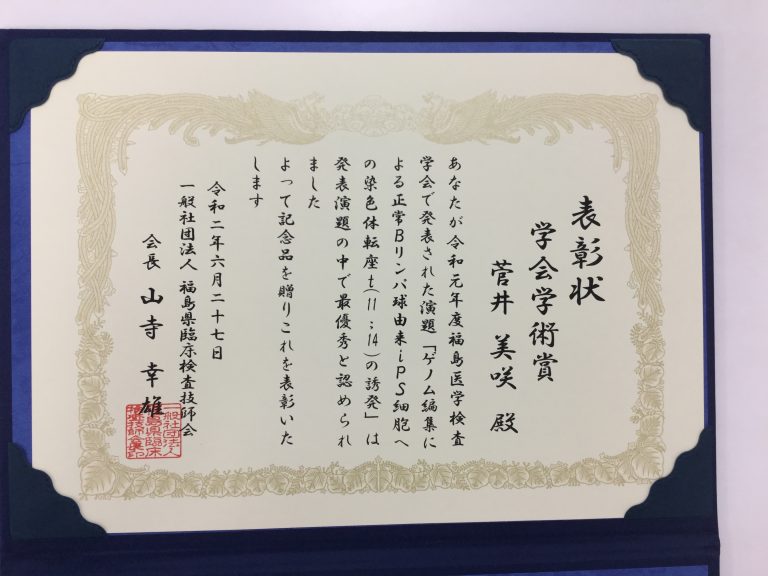 表彰状
学会学術賞
菅井 美咲 殿
あなたが令和元年度福島医学検査
学会で発表された演題「ゲノム編集に
よる正常Bリンパ球由来iPS細胞へ
の染色体転座t(11;14)の誘発」は
発表演題の中で最優秀と認められ
ました
よって記念品を贈りこれを表彰いた
します
令和二年六月二十七日
一般社団法人 福島県臨床検査技師会
会長 山寺 幸雄
一般社団法人
福島県臨床
検査技師会長印